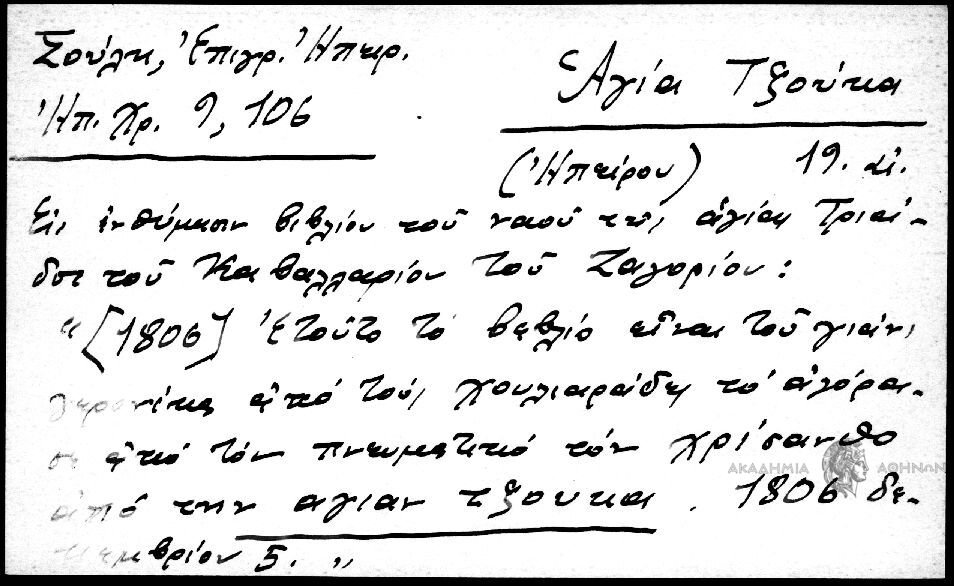 Σούλη, Ἐπιγρ. Ἠπειρ.
Ἠπ. Χρ. 9, 106
Ἁγία Τζούκα
(Ἠπείρου) 19. αἰ.
Εἰς ἐνθύμησιν βιβλίου τοῦ ναοῦ τῆς ἁγίας Τριά-
δος τοῦ Καβαλλαρίου τοῦ Ζαγορίου:
"[1806] Ἐτοῦτο τὸ βεβλίο εἶναι τοῦ γιάνι
ἀπό τούς χουλιαράδες τό ἀγόρα-
σε ἀπό τόν πνευματικό τόν χρίσανθο
ἀπό την αγιαν τζουκα. 1806 δε-
κεμβρίου 5. "
ΑΚΑΔΗΜΙΑ ΑΘΗΝΩΝ